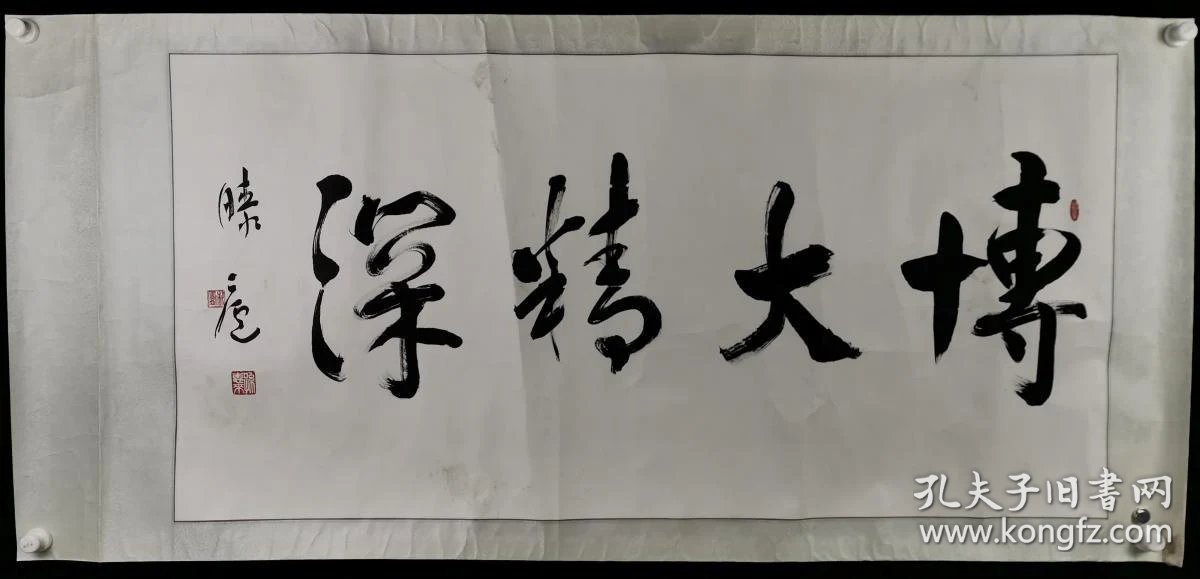 博大精深
孔夫子旧書网
www.kongfz.com